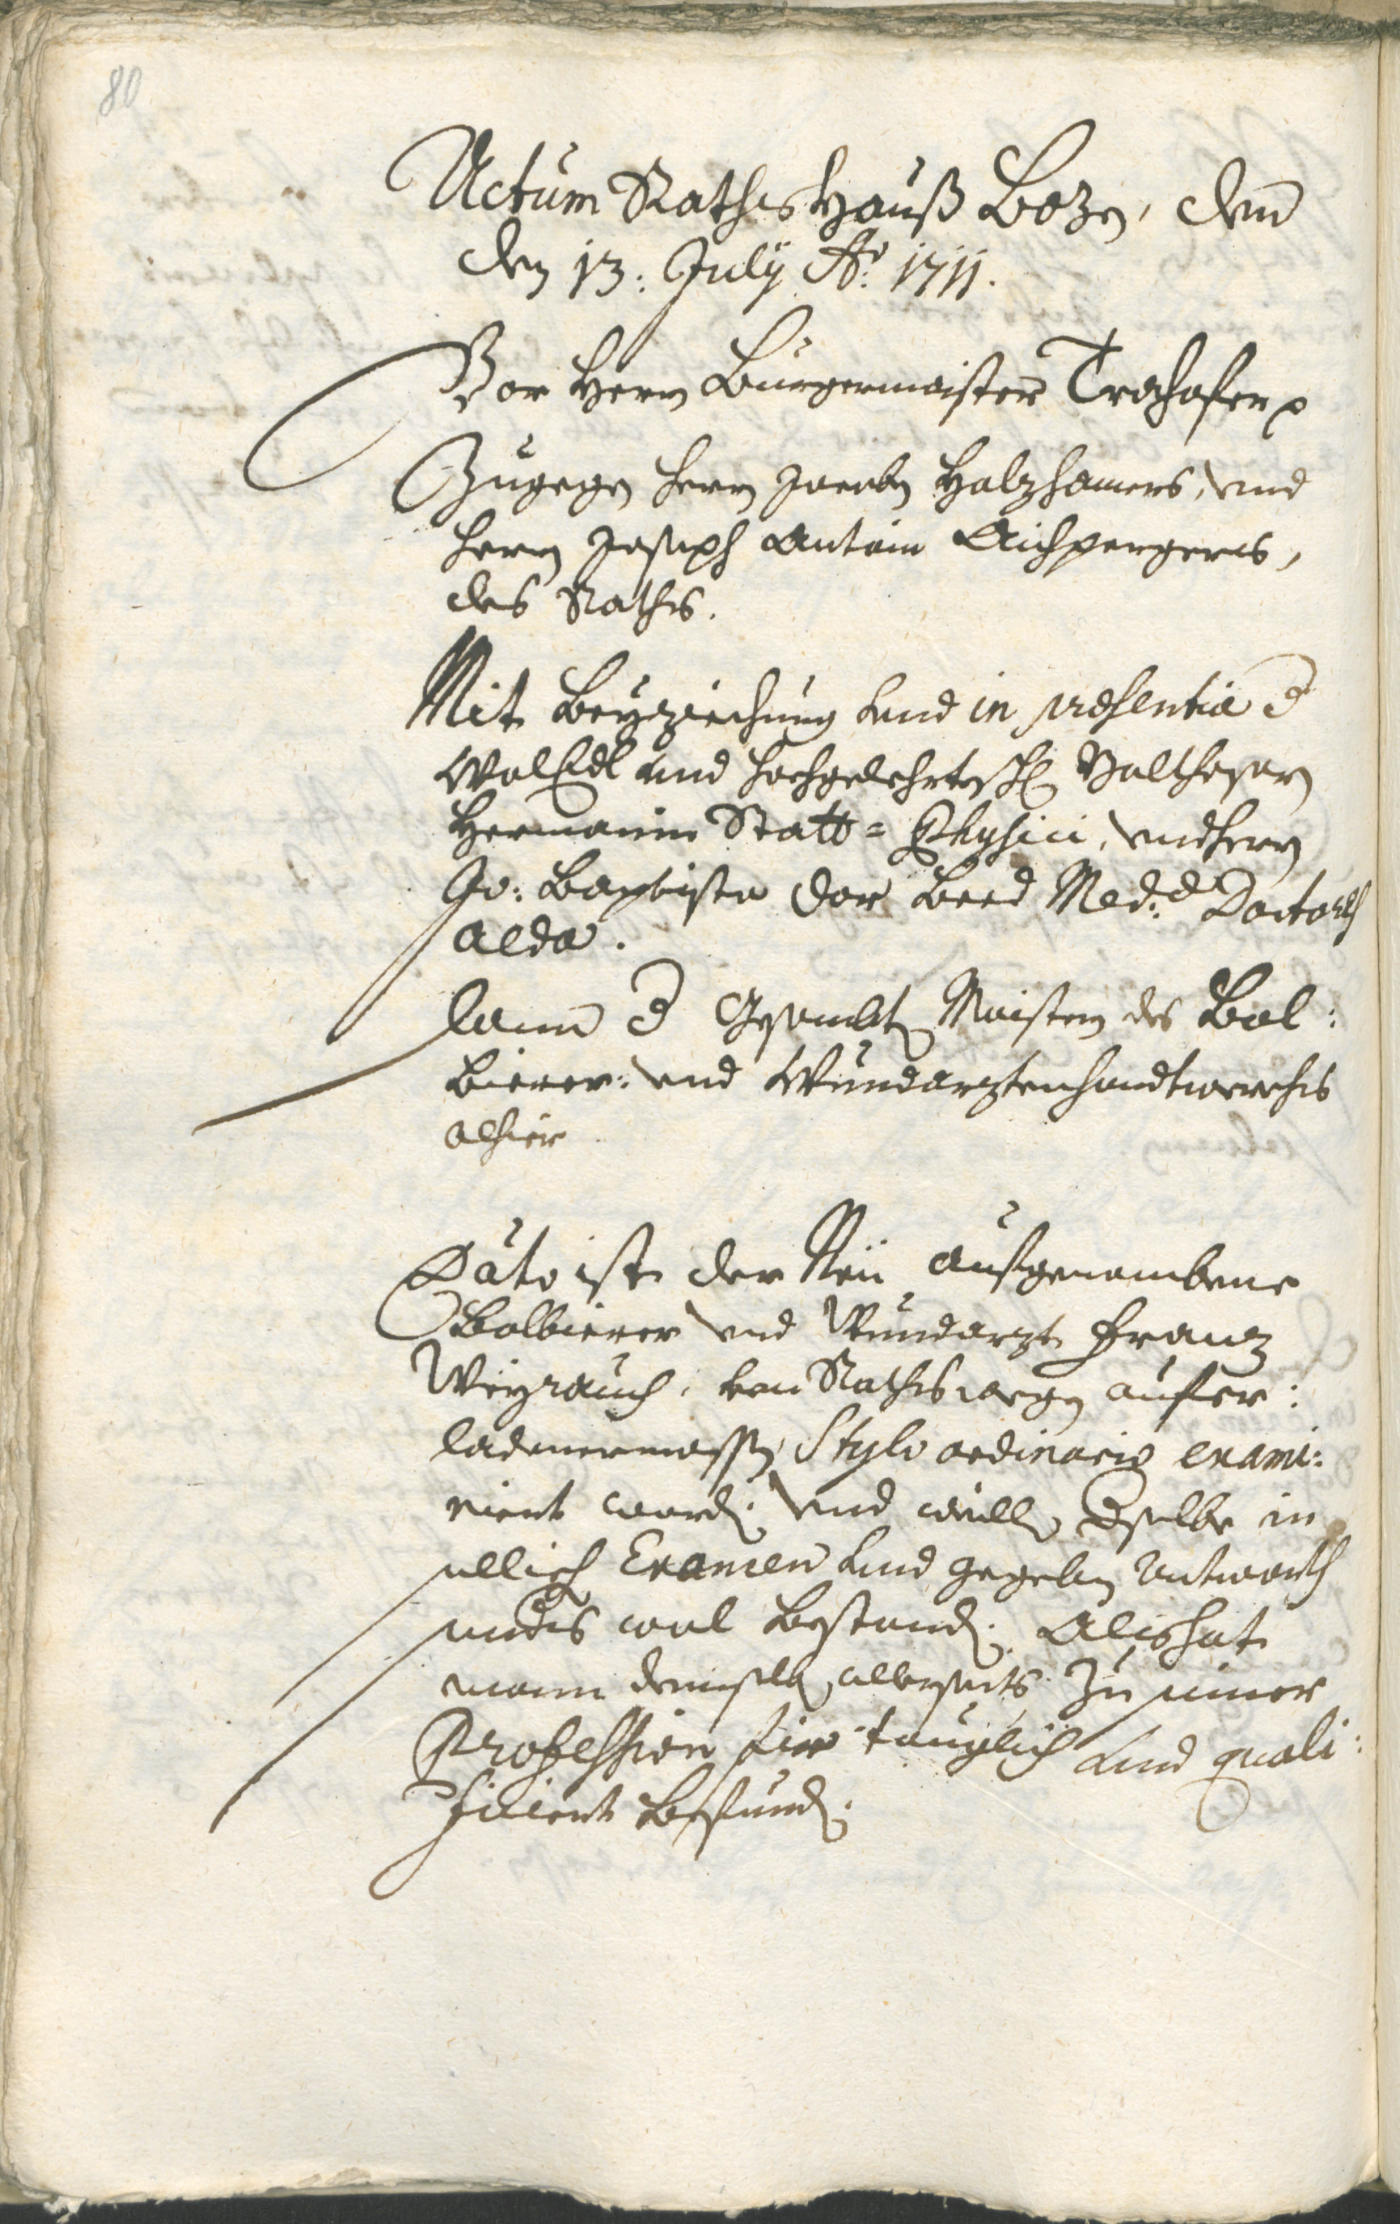 80
Actum Rathshauß Bozen, denn
den 13: July Ao: 1711.
Vor Herrn Burgermaister Trochofer p
Zugegen herrn Jacoben Holzhamers, und
herrn Joseph Antoni Aichpergers,
des Raths.
Mit Beyziechung und in presentia d
WolEdl und hochgelehrten H Balthasarn
Hermanin Statt= Physici, und herrn
Jo: Baptista Dor beed Med: Doctores
alda.
dann d Gesambten Maistern des Bal:
bierer: und Wundarztenhandtwerchs
alhier
Dato ist der Neu aufgenambene
Balbierer und Wundarzt Franz
Weyrauch, von Raths wegen aufer:
ladnermassen Stylo ordinario exami:
niert worden. und weillen dselbe in
sollich Examen und gegeben Antworth
wol bestanden. Als hat
mann demselben allerseits zu seiner
Profession fir tauglich und quali:
ficiert befunden.